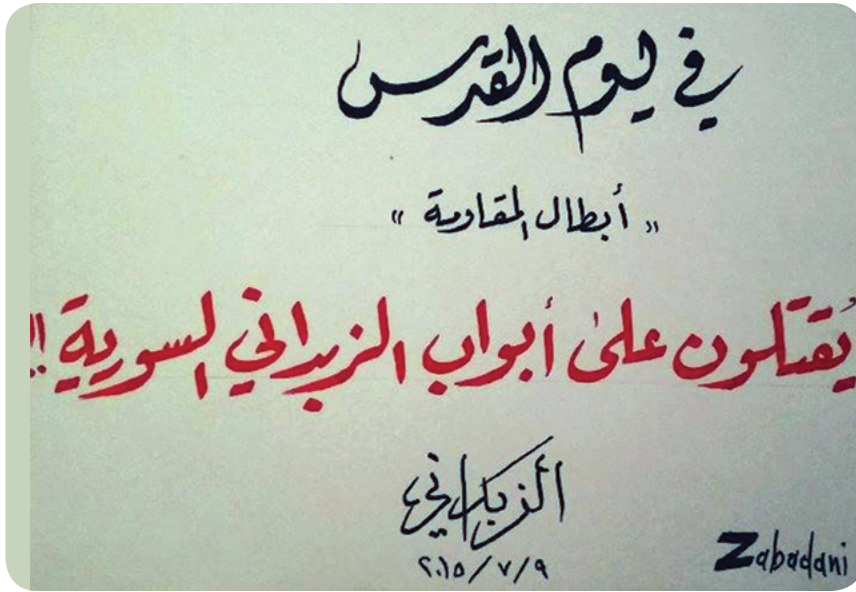 في يوم القدس
" أبطال المقاومة "
يُقتلون على أبواب الزبداني السورية !!
الزبداني
٢٠١٥/٧/٩
Zabadani